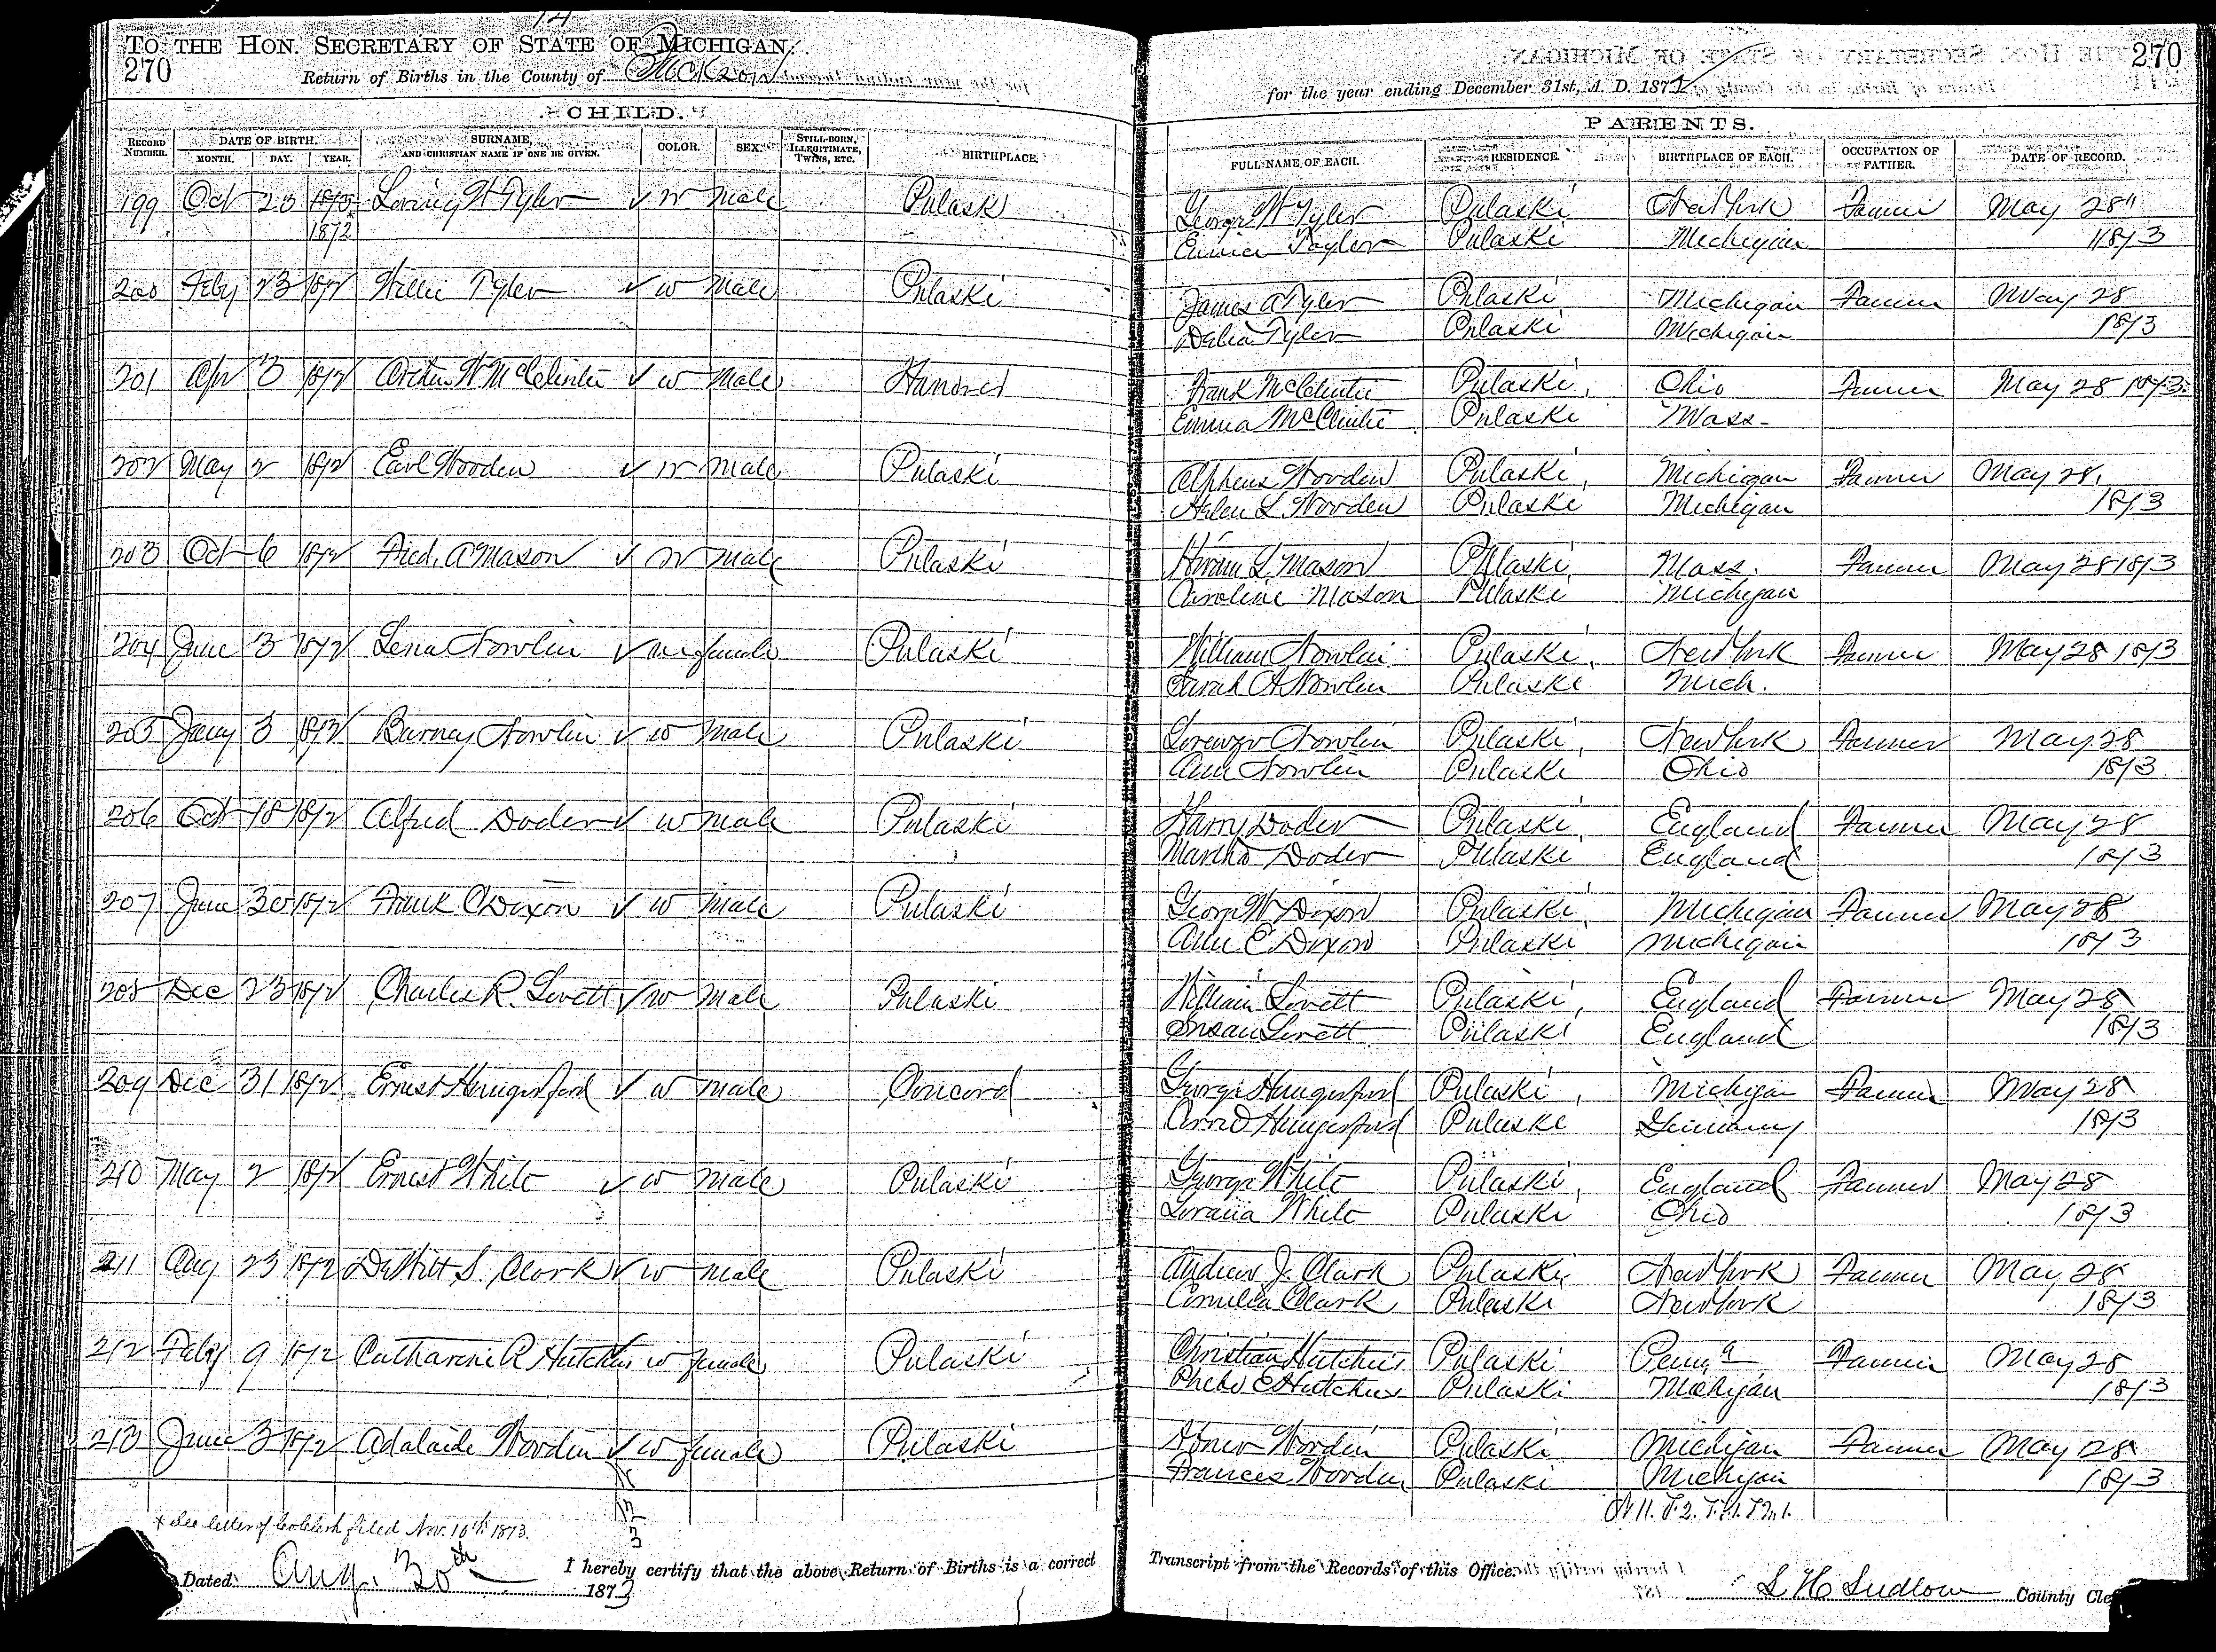 14
TO THE HON. SECRETARY OF STATE OF MICHIGAN:
270
Return of Births in the County of Jackson
for the year ending December 31st, A. D. 1872
270
CHILD.
PARENTS.
RECORD NUMBER. DATE OF BIRTH. MONTH. DAY. YEAR. SURNAME, AND CHRISTIAN NAME IF ONE BE GIVEN. COLOR. SEX. STILL-BORN, ILLEGITIMATE, TWINS, ETC. BIRTHPLACE. FULL NAME OF EACH. RESIDENCE. BIRTHPLACE OF EACH. OCCUPATION OF FATHER. DATE OF RECORD.
199 Oct 23 1873 Loring W Tyler ✓ w Male Pulaski George W Tyler Pulaski New York Farmer May 28"
1872 Eunice Taylor Pulaski Michigan 1873
200 Feby 23 1872 Willie Tyler ✓ w Male Pulaski James A Tyler Pulaski Michigan Farmer May 28
Delia Tyler Pulaski Michigan 1873
201 Apr 3 1872 Arthur W McClintic ✓ w Male Hanover Frank McClintic Pulaski, Ohio Farmer May 28 1873
Emma McClintic Pulaski Mass.
202 May 2 1872 Earl Wooden ✓ w Male Pulaski Alpheus Wooden Pulaski, Michigan Farmer May 28,
Helen L Wooden Pulaski Michigan 1873
203 Oct 6 1872 Fred. A Mason ✓ w Male Pulaski Hiram L. Mason Pulaski, Mass. Farmer May 28 1873
Caroline Mason Pulaski Michigan
204 June 3 1872 Lena Nowlin ✓ w female Pulaski William Nowlin Pulaski, New York Farmer May 28 1873
Sarah A Nowlin Pulaski Mich.
205 Jany 3 1872 Barney Nowlin ✓ w Male Pulaski Lorenzo Nowlin Pulaski, New York Farmer May 28
Ann Nowlin Pulaski Ohio 1873
206 Oct 18 1872 Alfred Doder ✓ w male Pulaski Harry Doder Pulaski, England Farmer May 28
Martha Doder Pulaski England 1873
207 June 30 1872 Frank C Dixon ✓ w Male Pulaski George W Dixon Pulaski, Michigan Farmer May 28
Ann E Dixon Pulaski Michigan 1873
208 Dec 23 1872 Charles R. Lovett ✓ w Male Pulaski William Lovett Pulaski, England Farmer May 28
Susan Lovett Pulaski England 1873
209 Dec 31 1872 Ernest Hungerford ✓ w male Concord George Hungerford Pulaski, Michigan Farmer May 28
Hungerford Pulaski Germany 1873
210 May 2 1872 Ernest White ✓ w Male Pulaski George White Pulaski, England Farmer May 28
White Pulaski Ohio 1873
211 Aug 23 1872 DeWitt S. Clark ✓ w male Pulaski Andrew J. Clark Pulaski, New York Farmer May 28
Clark Pulaski New York 1873
212 Feby 9 1872 Catharine R Hutchins w female Pulaski Christian Hutchins Pulaski Penna Farmer May 28
Phebe E Hutchins Pulaski Michigan 1873
213 June 3 1872 Adalaide Worden ✓ w female Pulaski Abner Worden Pulaski Michigan Farmer May 28
Frances Worden Pulaski Michigan 1873
* See letter of Co Clerk filed Nov. 10th 1873.
12
3
Dated Aug. 30th 1873 I hereby certify that the above Return of Births is a correct Transcript from the Records of this Office.
S H Ludlow County Cle